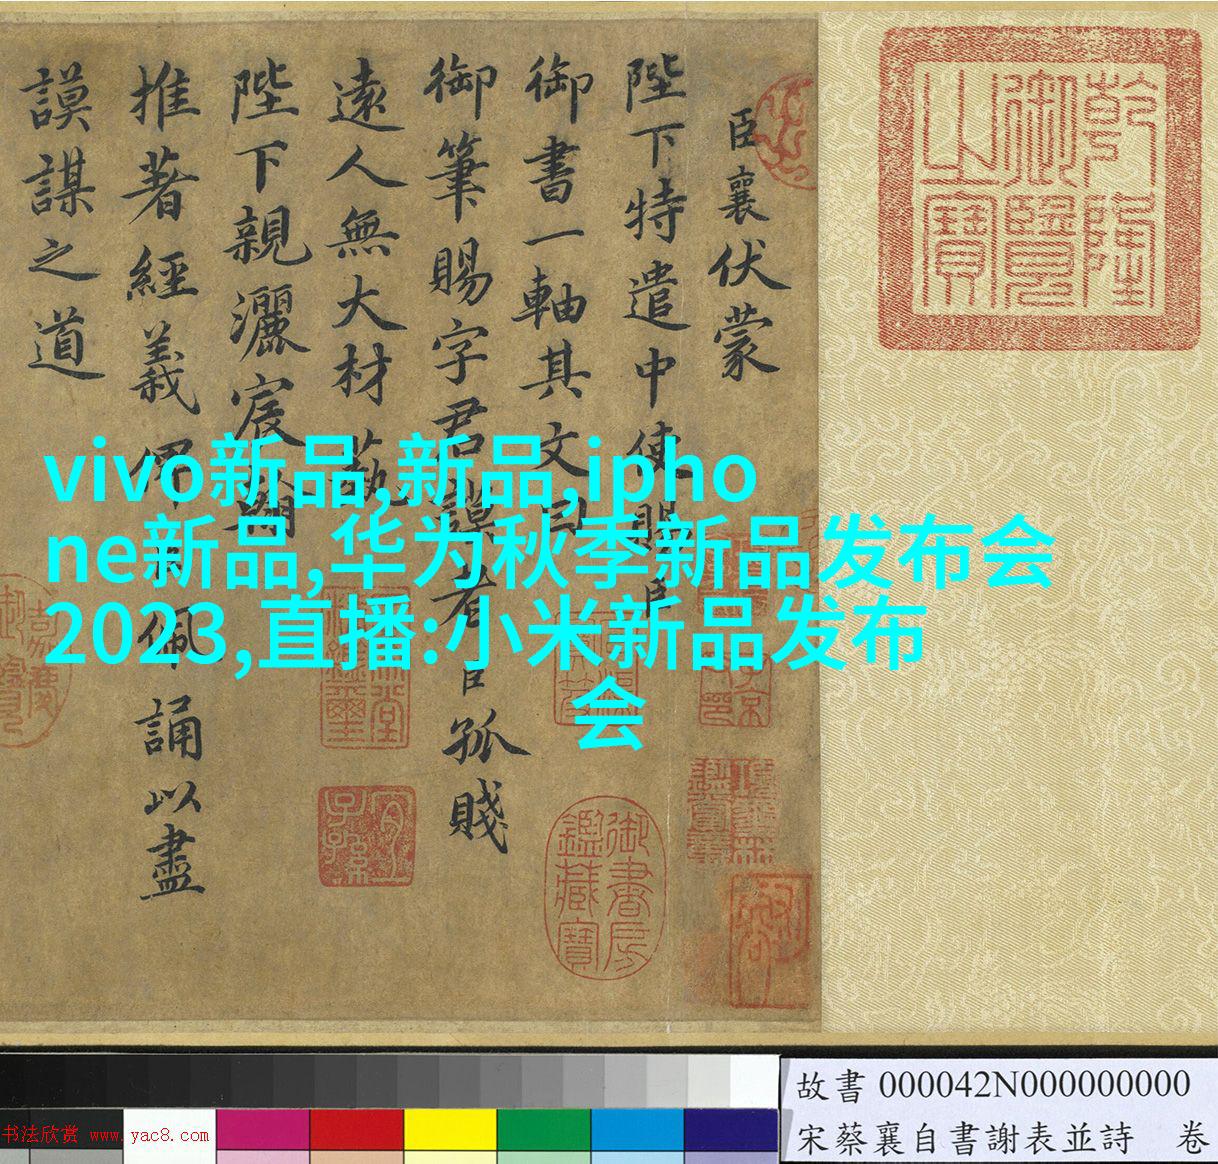 臣襄伏蒙
陛下特遣中使賜臣
御書一軸其文曰
御筆賜字君謨者臣孤賤
遠人無大材藝
陛下親灑宸翰
推著經義俾臣佩誦以盡
謨謀之道
乾隆
御覽
之寶
御書房
鑑藏寶
宜子
孫
vivo新品,新品,ipho
ne新品,华为秋季新品发布会
2023,直播:小米新品发布
会
故書 000042N000000000
宋蔡襄自書謝表並詩 卷
书法欣赏 www.yac8.com